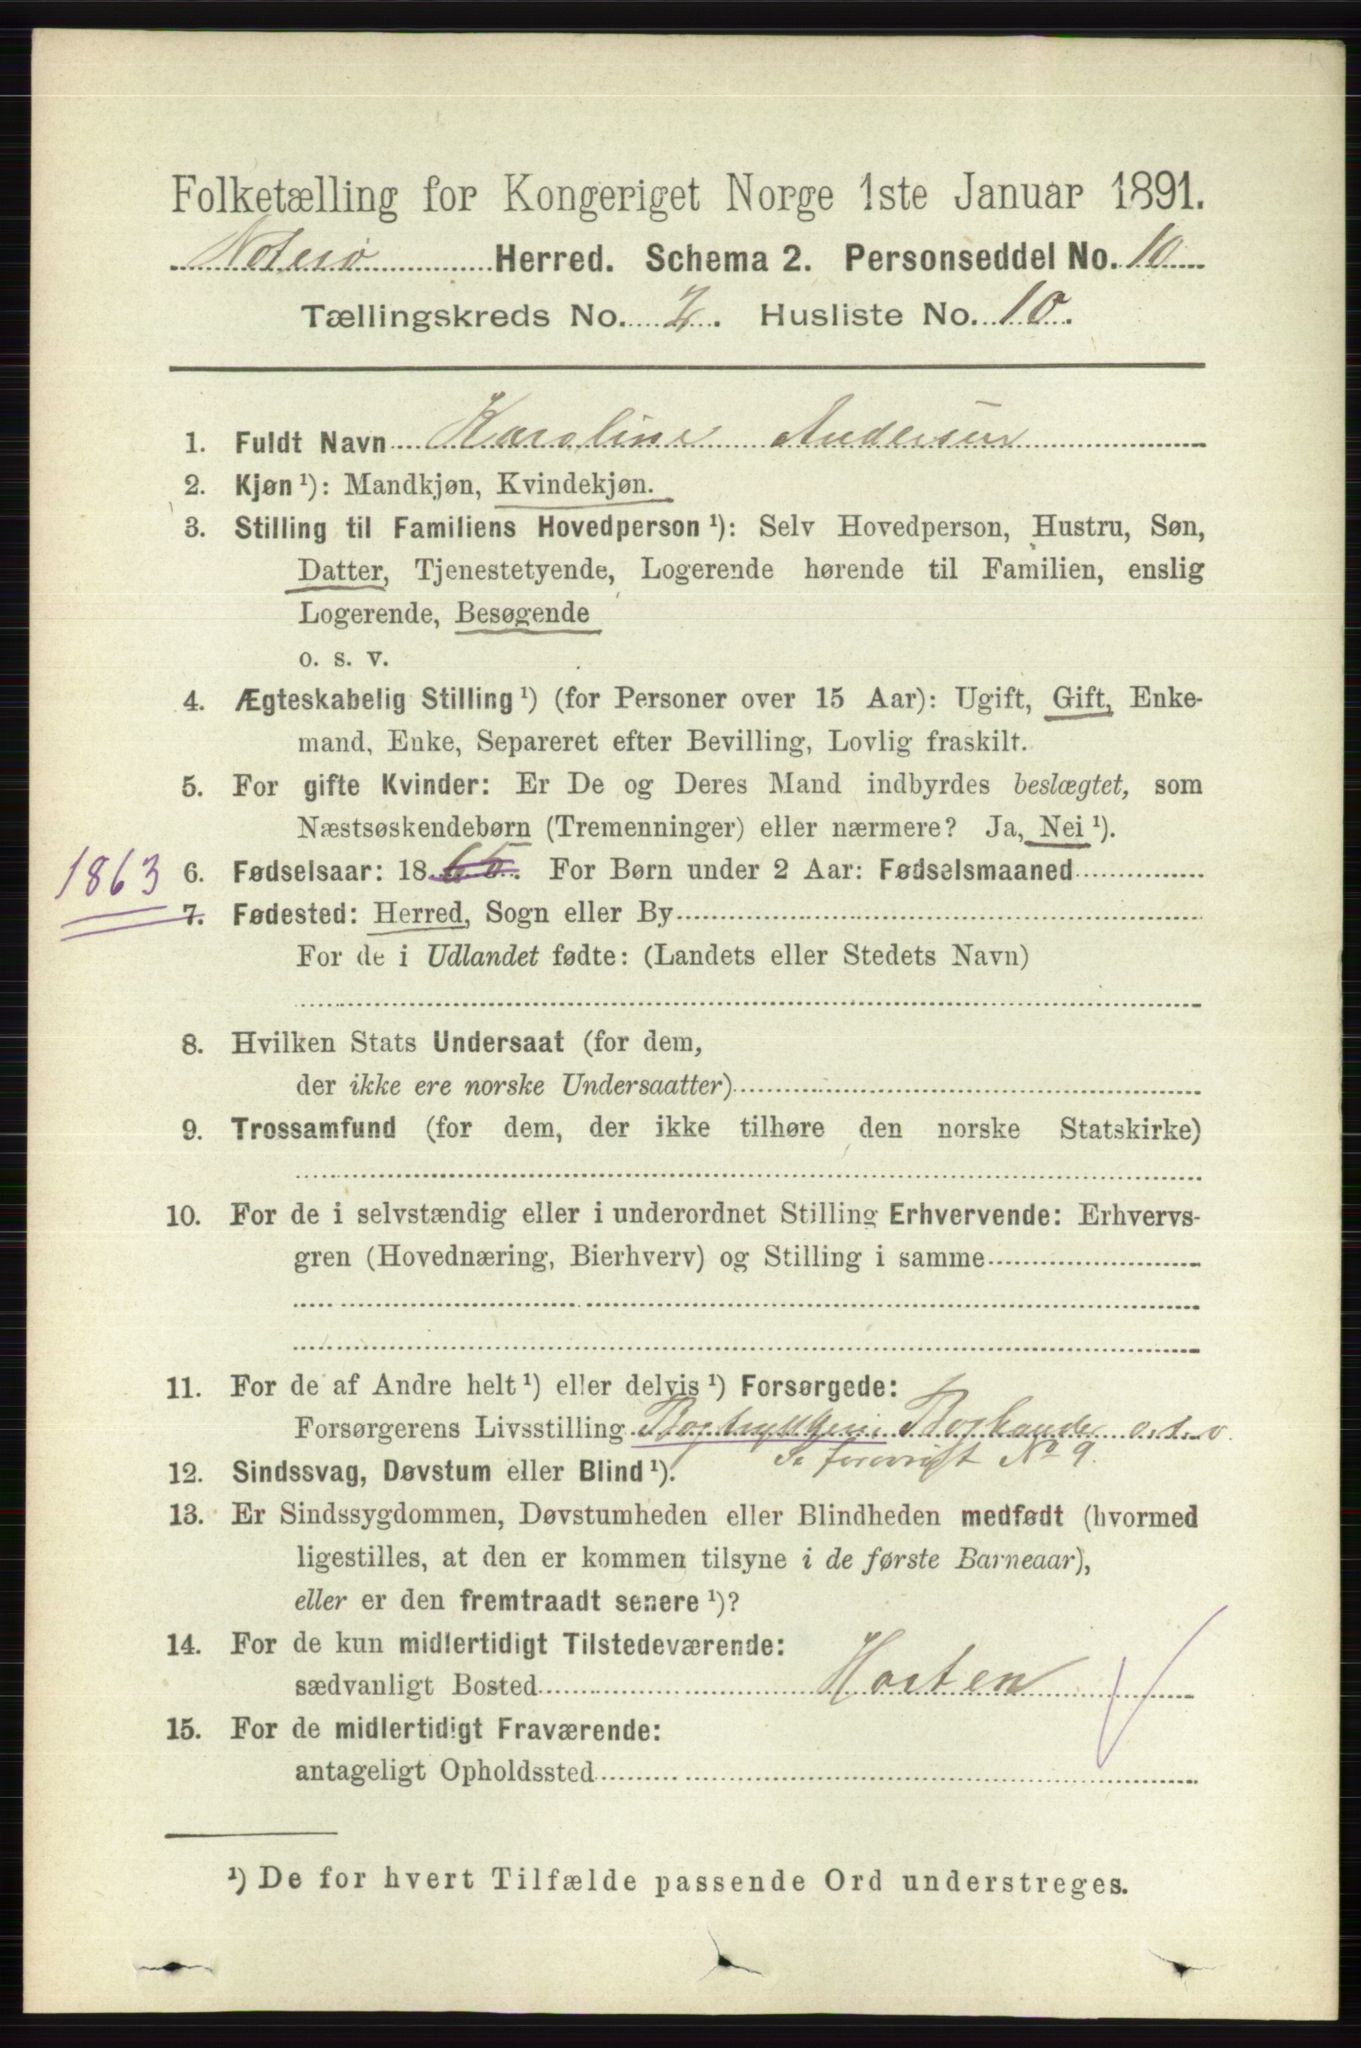 Folketælling for Kongeriget Norge 1ste Januar 1891.
Noterø Herred. Schema 2. Personseddel No. 10
Tællingskreds No. 2. Husliste No. 10.
1. Fuldt Navn Karoline Andersen
2. Kjøn ¹): Mandkjøn, Kvindekjøn.
3. Stilling til Familiens Hovedperson ¹): Selv Hovedperson, Hustru, Søn,
Datter, Tjenestetyende, Logerende hørende til Familien, enslig
Logerende, Besøgende
o. s. v.
4. Ægteskabelig Stilling ¹) (for Personer over 15 Aar): Ugift, Gift, Enke-
mand, Enke, Separeret efter Bevilling, Lovlig fraskilt.
5. For gifte Kvinder: Er De og Deres Mand indbyrdes beslægtet, som
Næstsøskendebørn (Tremenninger) eller nærmere? Ja, Nei ¹).
1863 6. Fødselsaar: 1865. For Børn under 2 Aar: Fødselsmaaned
7. Fødested: Herred, Sogn eller By
For de i Udlandet fødte: (Landets eller Stedets Navn)
8. Hvilken Stats Undersaat (for dem,
der ikke ere norske Undersaatter)
9. Trossamfund (for dem, der ikke tilhøre den norske Statskirke)
10. For de i selvstændig eller i underordnet Stilling Erhvervende: Erhvervs-
gren (Hovednæring, Bierhverv) og Stilling i samme
11. For de af Andre helt ¹) eller delvis ¹) Forsørgede:
Forsørgerens Livsstilling Bogtrykkeri, Boghandel o.s.v.
Se forøvrigt No 9.
12. Sindssvag, Døvstum eller Blind ¹).
13. Er Sindssygdommen, Døvstumheden eller Blindheden medfødt (hvormed
ligestilles, at den er kommen tilsyne i de første Barneaar),
eller er den fremtraadt senere ¹)?
14. For de kun midlertidigt Tilstedeværende:
sædvanligt Bosted Horten
15. For de midlertidigt Fraværende:
antageligt Opholdssted
¹) De for hvert Tilfælde passende Ord understreges.